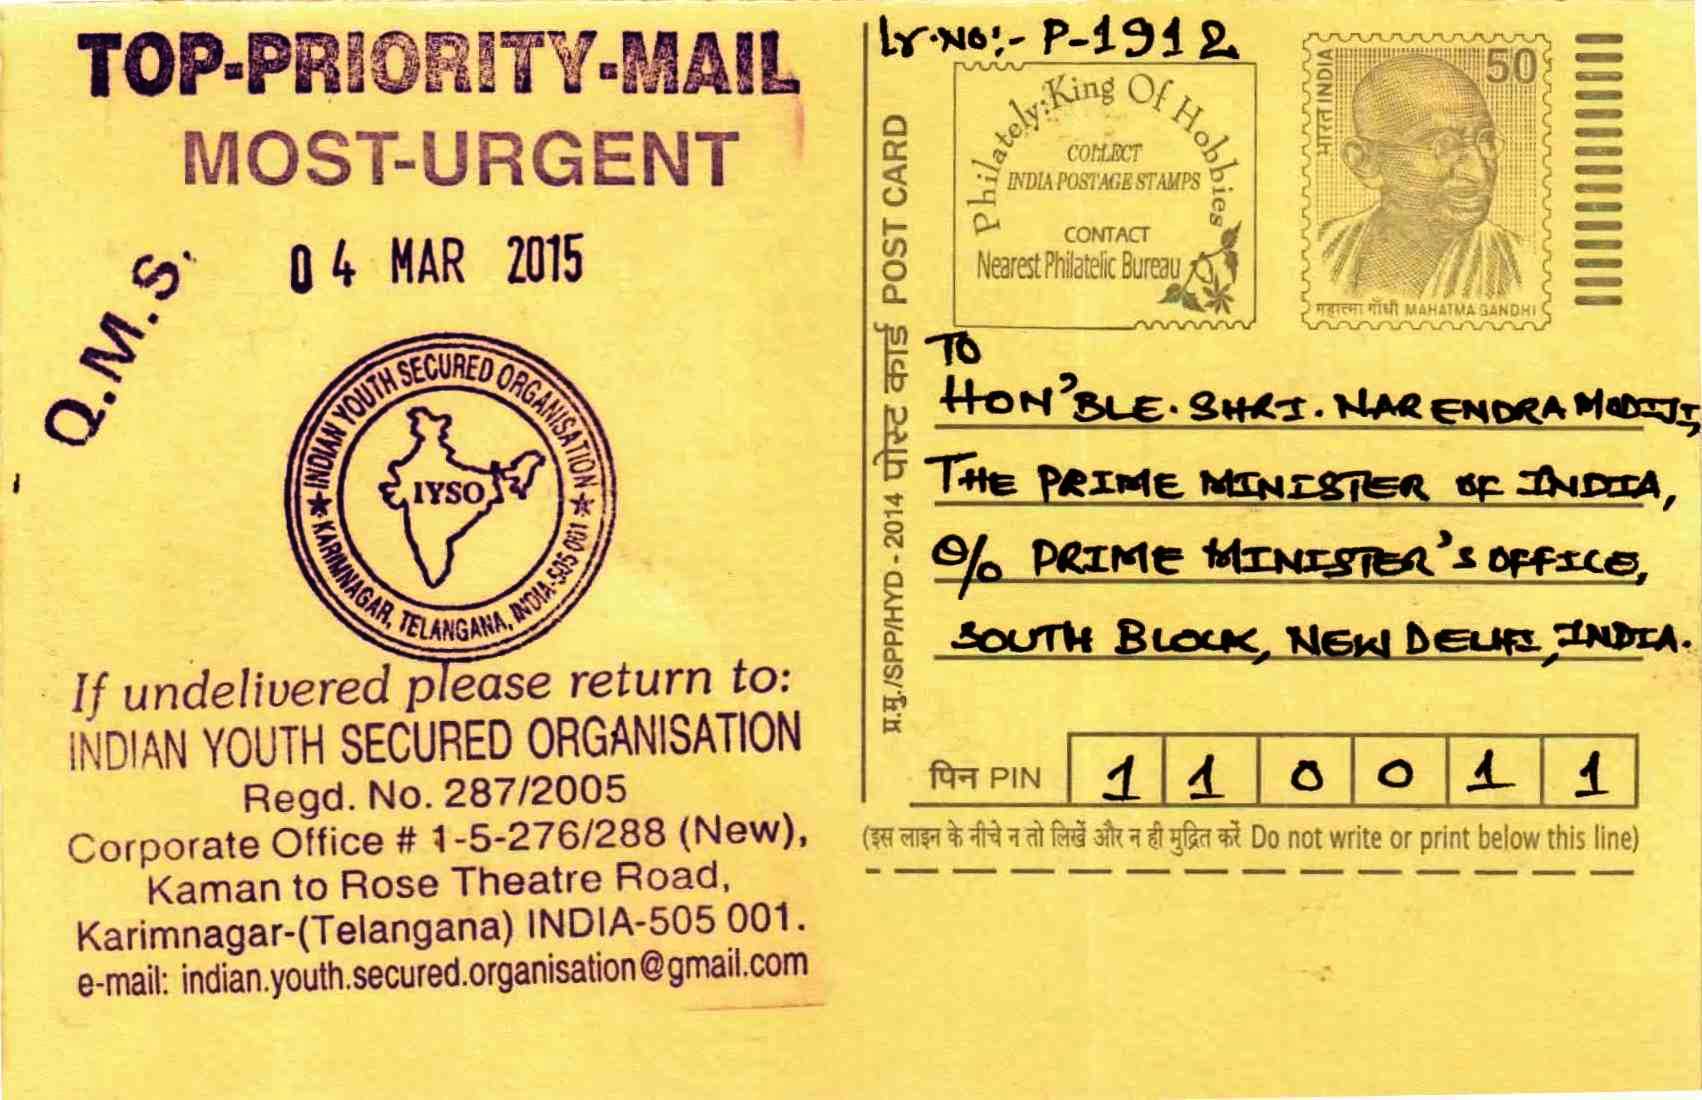 TOP-PRIORITY-MAIL
MOST-URGENT
04 MAR 2015
Q.M.S.
★ INDIAN YOUTH SECURED ORGANISATION ★
KARIMNAGAR, TELANGANA, INDIA-505 001
IYSO
If undelivered please return to:
INDIAN YOUTH SECURED ORGANISATION
Regd. No. 287/2005
Corporate Office # 1-5-276/288 (New),
Kaman to Rose Theatre Road,
Karimnagar-(Telangana) INDIA-505 001.
e-mail: indian.youth.secured.organisation@gmail.com
प्र.मु./SPP/HYD - 2014 पोस्ट कार्ड POST CARD
Lr.No:- P-1912
Philately:King Of Hobbies
COLLECT
INDIA POSTAGE STAMPS
CONTACT
Nearest Philatelic Bureau
भारत INDIA
50
महात्मा गाँधी MAHATMA GANDHI
TO
HON'BLE. SHRI. NARENDRA MODIJI,
THE PRIME MINISTER OF INDIA,
O/o PRIME MINISTER'S OFFICE,
SOUTH BLOCK, NEW DELHI, INDIA.
पिन PIN 1 1 0 0 1 1
(इस लाइन के नीचे न तो लिखें और न ही मुद्रित करें Do not write or print below this line)